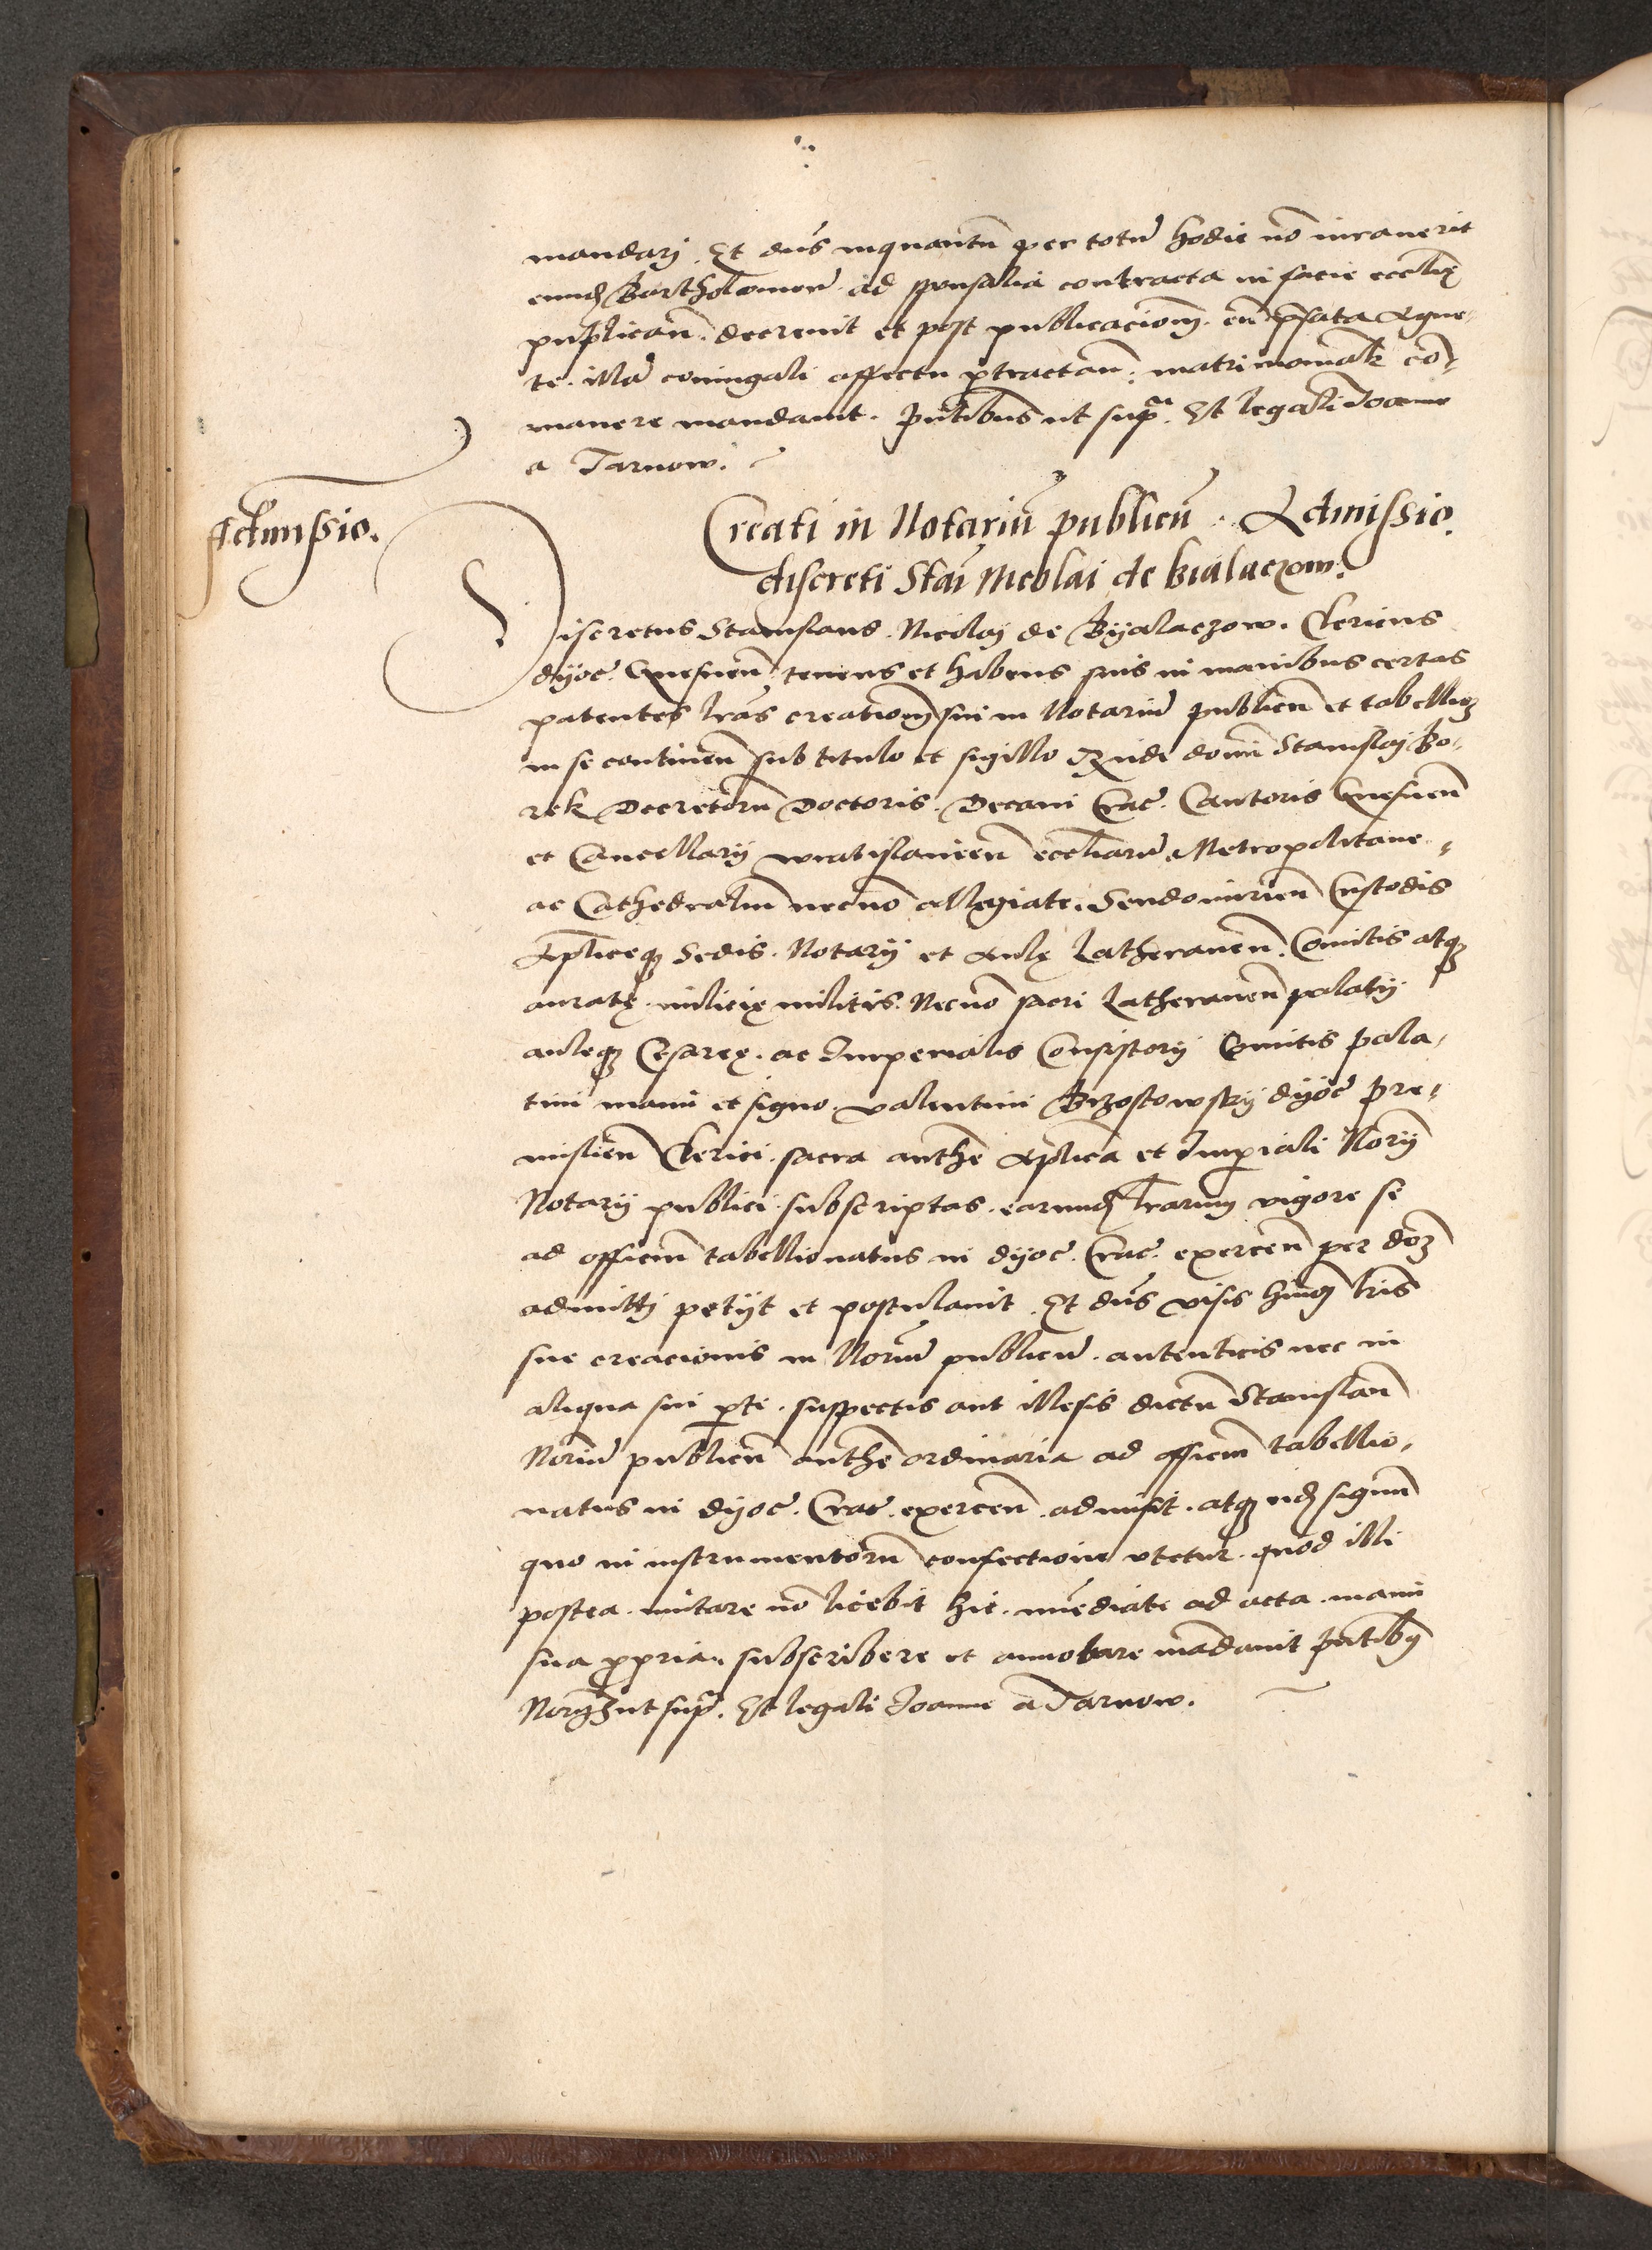 mandarj. Et dns inquantū per totū hodie nō incauerit
eund Bartholomeū ad sponsalia contracta in facie eccelię
puplicān. decreuit et post publicaciōnē cū p̄fata Agne-
te. illā coniugali affectu ptractan. matrimonialr cō-
manere mandauit. Pn̄tibus ut supra. Et legali Joanne
a Tarnow.
Admissio.
Creati in Notariū publicū. Admissio
discreti Stāi Nicolai de Bialaczow.
Discretus Stanislaus Nicolaj de Byalaczow. Clericus
dyoc. Gnesnen̄ tenens et habens suis in manibus certas
patentes lrās creationis sui in Notariū publicū et tabellioȝ
in se continen̄ sub titulo et sigillo Rndi domi Stanislaj Bo-
rek Decretorū Doctoris. Decani Crac. Cantoris Gnesnen̄
et Cancellarij wratislauien̄ eccliarū Metropolitane
ac Cathedraliū necnō collegiate. Sendomirien̄ Custodis
Apliceqȝ Sedis. Notarij et Aulę Latheranen̄. Comitis atqȝ
auratę milicię militis. Necnō sacri Latheranen̄ palatij
auleqȝ Cesareę. ac Imperialis Consistorij Comitis pala-
tini manu et signo. Valentini Brzostowskij dyoc Pre-
mislien̄ Clerici. sacra authe Aplica et Imperiali Norij
Notarij publici subscriptas. earund lrarum vigore se
ad officiū tabellionatus in dyoc. Crac. exercen̄ per doȝ
admittj petijt et postulauit. Et dns visis huiq lris
sue creacionis in Noriū publicū. autenticis nec in
aliqua sui pte. suspectis aut illesis dictū Stanislaū
Noriū publicū authe ordinaria ad officiū tabellio-
natus in dyoc. Crac. exercen̄ admisit. atqȝ eid signū
quo in instrumentorū confectione vtetur. quod illi
postea. mutare nō licebit hic. imediate ad acta. manu
sua propria. subscribere et annotare mādauit pn̄tibȝ
Norȝ ut supr. Et legali Joanne a Tarnow.